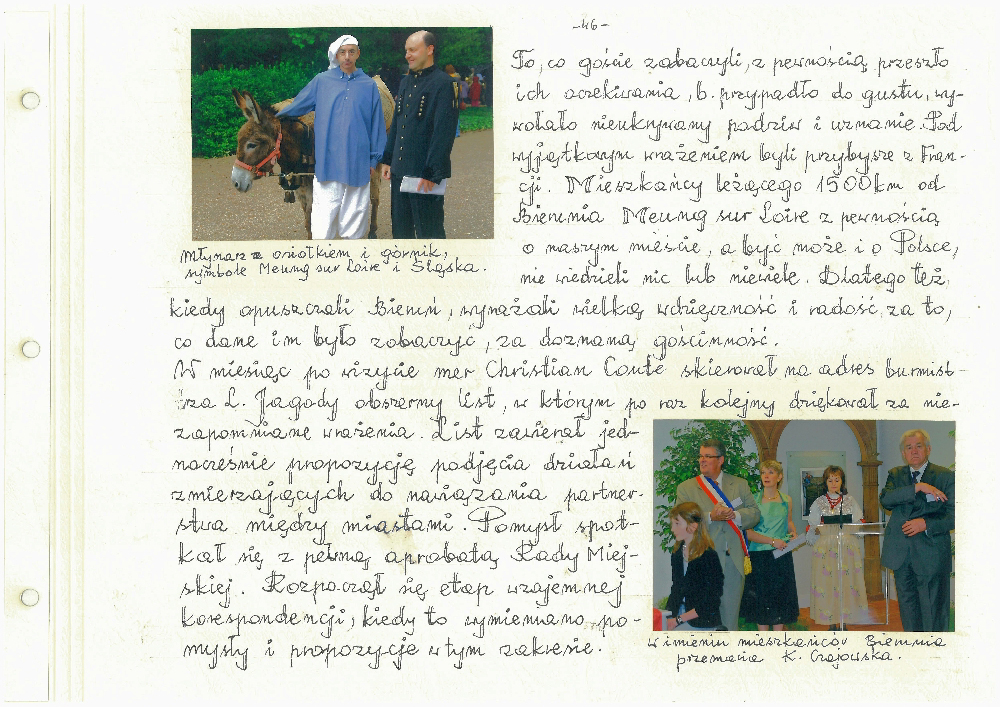 -46-
To, co goście zobaczyli, z pewnością przeszło
ich oczekiwania, b. przypadło do gustu, wy-
wołało nieukrywany podziw i uznanie. Pod
wyjątkowym wrażeniem byli przybysze z Fran-
cji. Mieszkańcy leżącego 1500 km od
Bierunia Meung sur Loire z pewnością
o naszym mieście, a być może i o Polsce,
nie wiedzieli nic lub niewiele. Dlatego też,
Młynarz z osiołkiem i górnik,
symbole Meung sur Loire i Śląska.
kiedy opuszczali Bieruń, wyrażali wielką wdzięczność i radość za to,
co dane im było zobaczyć, za doznaną gościnność.
W miesiąc po wizycie mer Christian Conte skierował na adres burmist-
rza L. Jagody obszerny list, w którym po raz kolejny dziękował za nie-
zapomniane wrażenia. List zawierał jed-
nocześnie propozycję podjęcia działań
zmierzających do nawiązania partner-
stwa między miastami. Pomysł spot-
kał się z pełną aprobatą Rady Miej-
skiej. Rozpoczął się etap wzajemnej
korespondencji, kiedy to wymieniano po-
mysły i propozycje w tym zakresie.
W imieniu mieszkańców Bierunia
przemawia K. Czajowska.